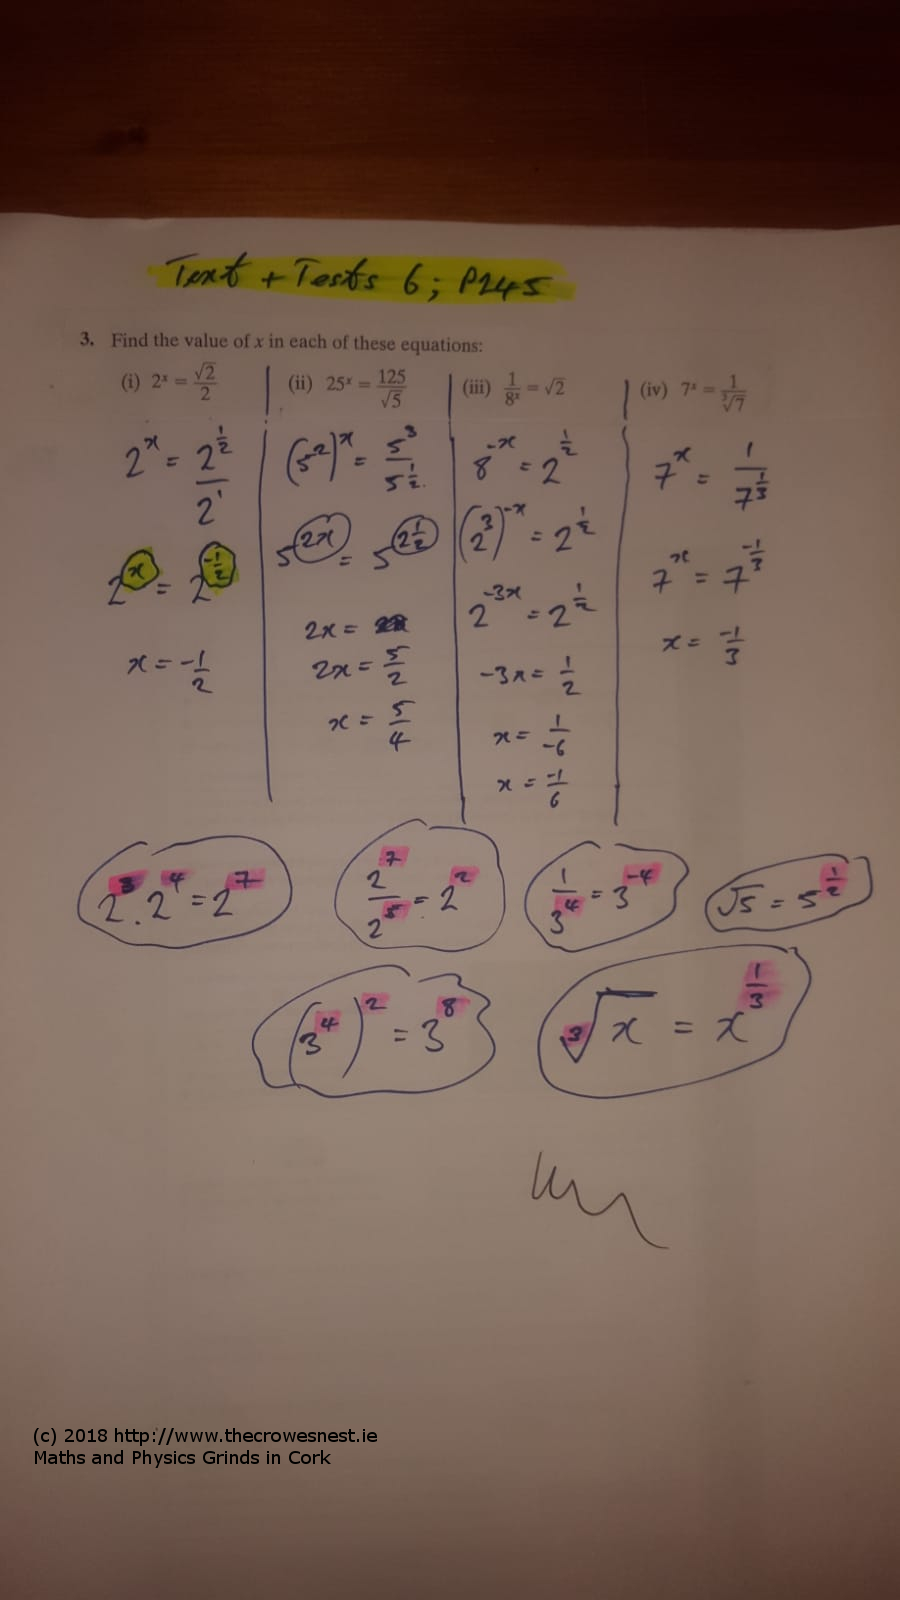 Text + Tests 6; P245
3. Find the value of x in each of these equations:
(i) 2ˣ = √2/2
2ˣ = 2^(1/2)/2¹
2ˣ = 2^(-1/2)
x = -1/2
(ii) 25ˣ = 125/√5
(5²)ˣ = 5³/5^(1/2)
5^(2x) = 5^(2 1/2)
2x =
2x = 5/2
x = 5/4
(iii) 1/8ˣ = √2
8^(-x) = 2^(1/2)
(2³)^(-x) = 2^(1/2)
2^(-3x) = 2^(1/2)
-3x = 1/2
x = 1/-6
x = -1/6
(iv) 7ˣ = 1/∛7
7ˣ = 1/7^(1/3)
7ˣ = 7^(-1/3)
x = -1/3
2³ . 2⁴ = 2⁷
2⁷/2⁵ = 2²
1/3⁴ = 3⁻⁴
√5 = 5^(1/2)
(3⁴)² = 3⁸
∛x = x^(1/3)
(c) 2018 http://www.thecrowesnest.ie
Maths and Physics Grinds in Cork